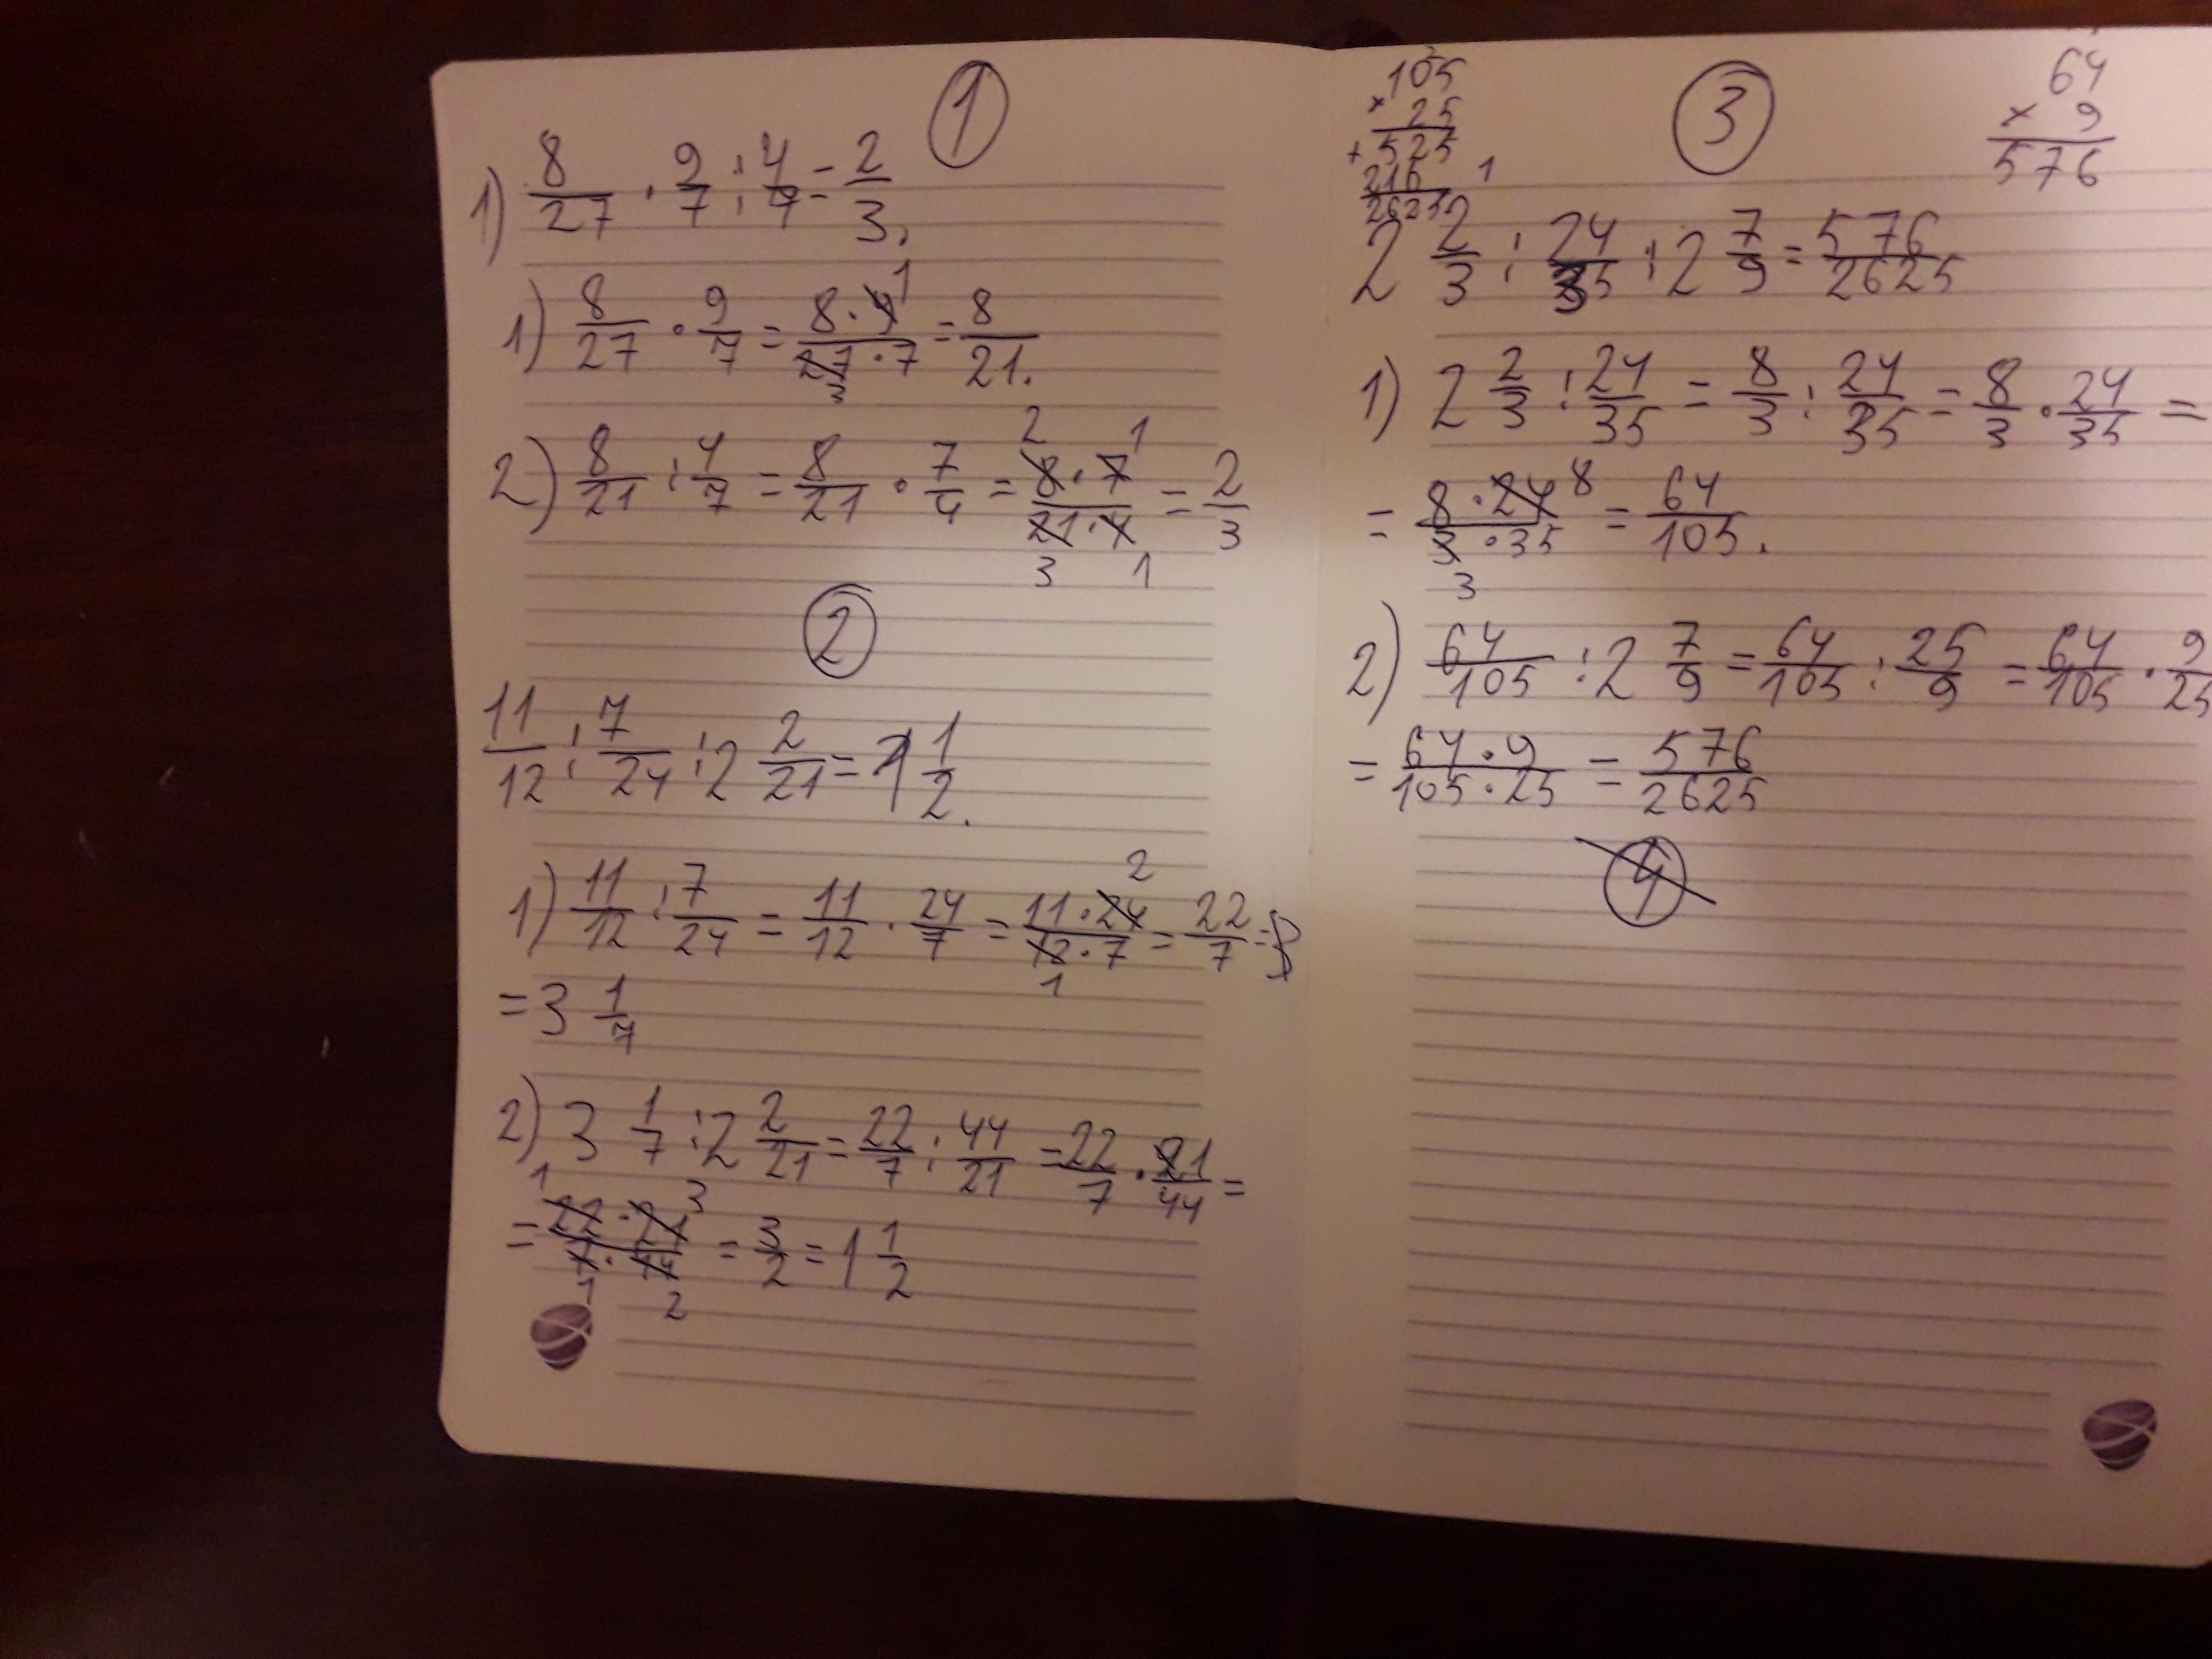 ①
1) 8/27 · 9/7 : 4/7 = 2/3.
1) 8/27 · 9/7 = 8·9/27·7 = 8/21.
1
3
2) 8/21 : 4/7 = 8/21 · 7/4 = 8·7/21·4 = 2/3
2 1
3 1
②
11/12 : 7/24 : 2 2/21 = 1 1/2.
1) 11/12 : 7/24 = 11/12 · 24/7 = 11·24/12·7 = 22/7 =
2
1
= 3 1/7
2) 3 1/7 : 2 2/21 = 22/7 : 44/21 = 22/7 · 21/44 =
= 22·21/7·44 = 3/2 = 1 1/2
1 3
1 2
③
105
× 25
+ 525
216
2625
1
64
× 9
576
2 2/3 : 24/35 : 2 7/9 = 576/2625
1) 2 2/3 : 24/35 = 8/3 : 24/35 = 8/3 · 24/35 =
= 8·24/3·35 = 64/105.
8
3
2) 64/105 : 2 7/9 = 64/105 : 25/9 = 64/105 · 9/25
= 64·9/105·25 = 576/2625
④